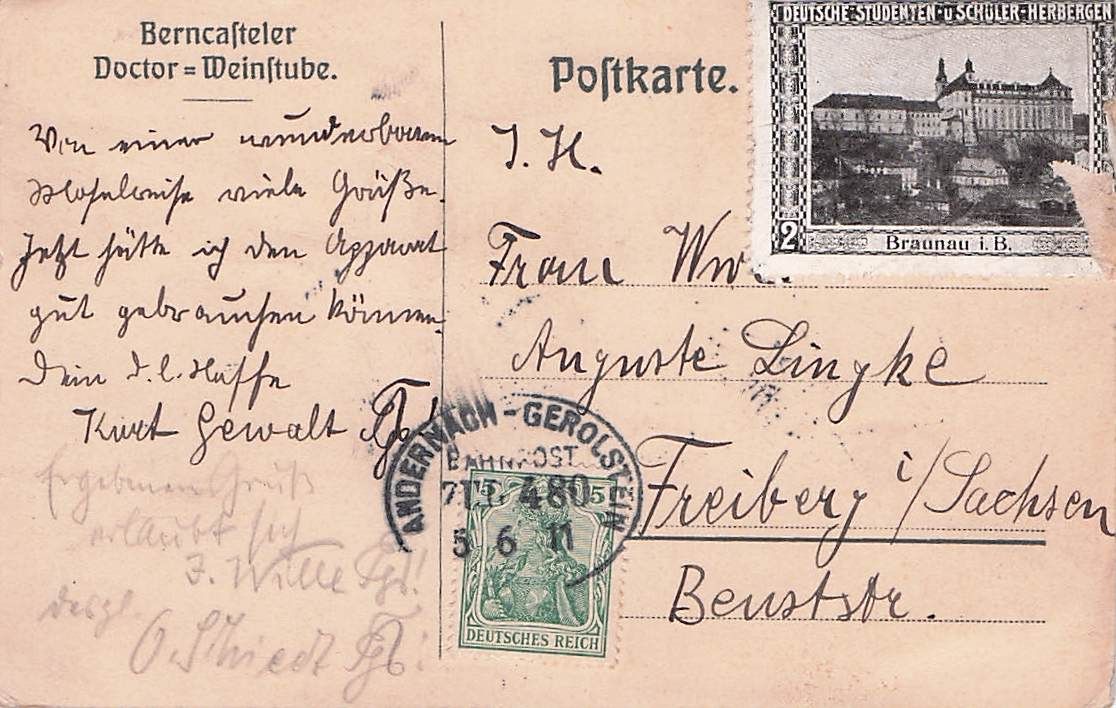 Berncasteler
Doctor=Weinstube.
Von einer wunderbaren
Moselreise viele Grüße.
Jetzt hätte ich den Apparat
gut gebrauchen können.
Dein d. l. Neffe
Kurt Gewalt
Ergebenen Gruß
erlaubt sich
J. Wille
desgl.
O. Schiedt
Postkarte.
I. H.
Frau Ww.
Auguste Lingke
Freiberg i/Sachsen
Beuststr.
DEUTSCHE-STUDENTEN-U-SCHÜLER-HERBERGEN
2
Braunau i. B.
ANDERNACH-GEROLSTEIN
BAHNPOST
ZUG 480
5 6 11
5 5
DEUTSCHES REICH